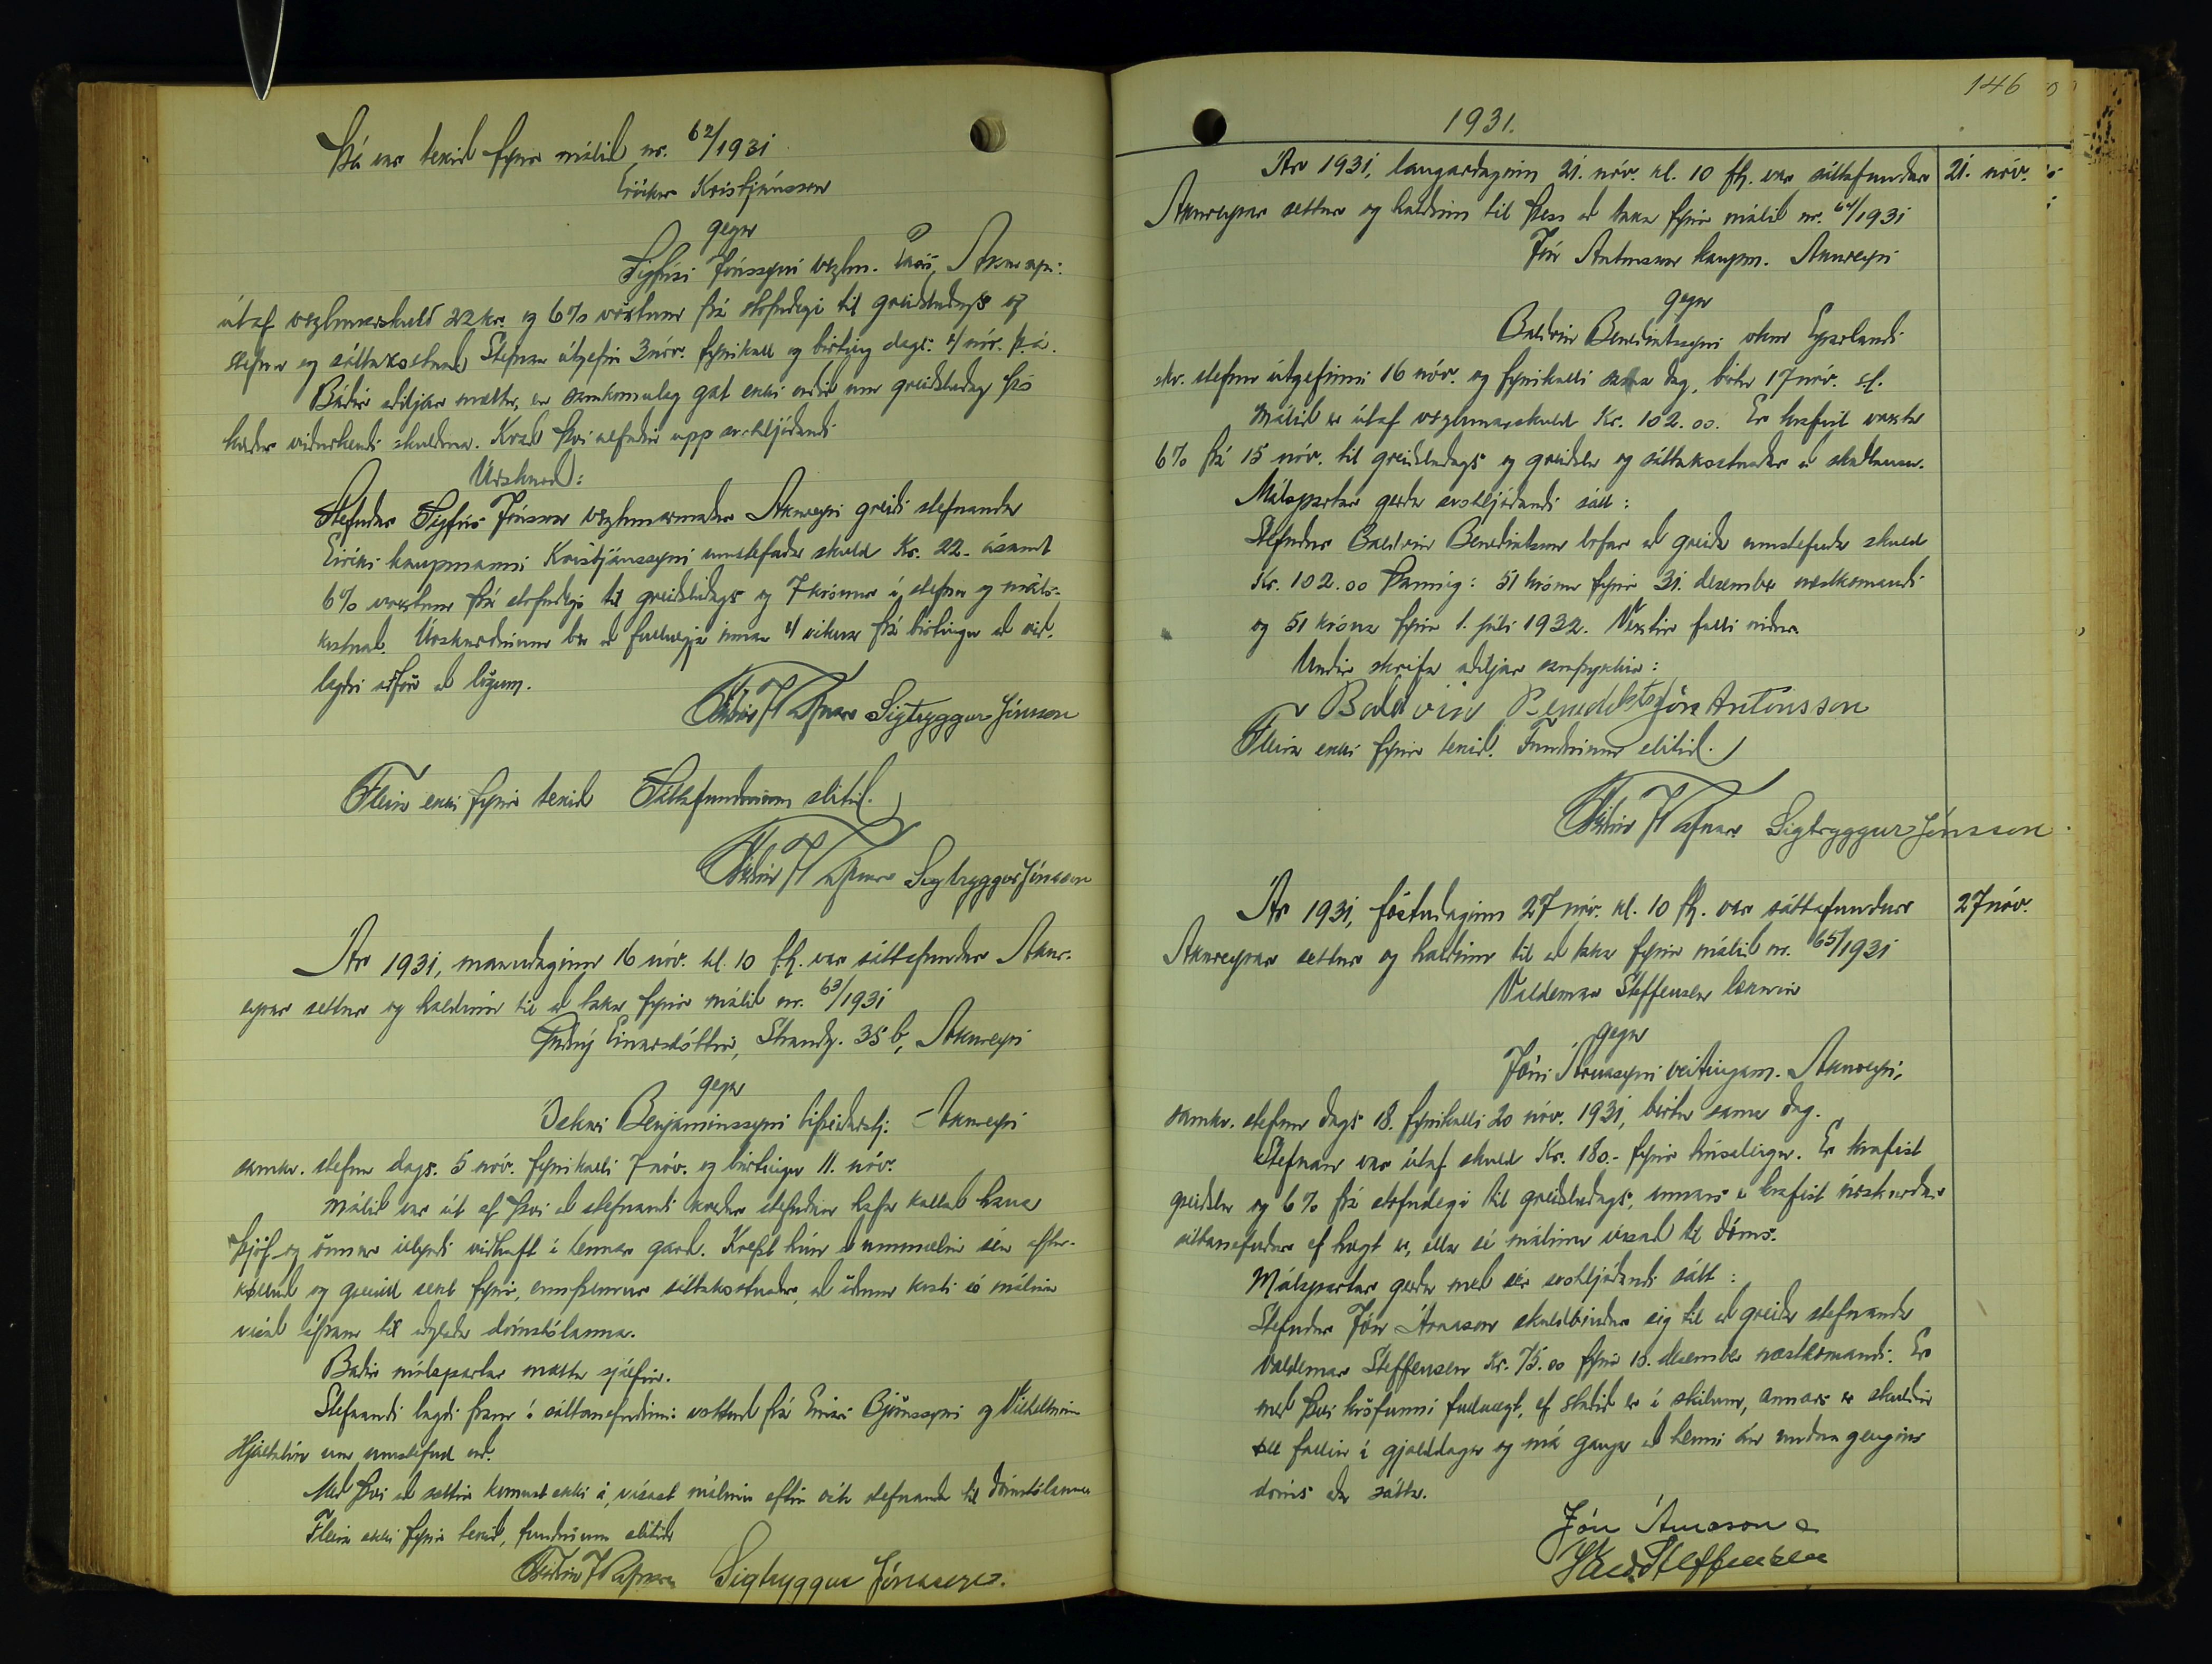 Þá var tekið fyrir málið nr. 62/1931
Eiríkur Kristjánsson
gegn
Sigfúsi Jónssyni verzlm. Akureyri:
útaf verzlunarskuld 22 kr. og 6% vöxtum frá stefndegi til greiðsludags og
stefnu og sáttakostnað. Stefnan útgefin 3 nóv. fyrirkall og birting dags. 4/ nóv. þ.á.
Báðir aðiljar mættu, en samkomulag gat ekki orðið um greiðsludag þó
kærður viðurkendi skuldina. Kvað því nefndin upp svohljóðandi
Úrskurð:
Stefndur Sigfús Jónsson verzlunarmaður Akureyri greiði stefnanda
Eiríki kaupmanni Kristjánssyni umstefnda skuld Kr. 22.- ásamt
6% vöxtum frá stefndegi til greiðsludags og 7 krónur í stefnu og máls-
kostnað. Úrskurðinum ber að fullnægja innan 4 vikna frá birtingu að við-
lagðri aðför að lögum.
Friðrik J Rafnar Sigtryggur Jónsson
Fleira ekki fyrir tekið Sáttafundinum slitið.
Friðrik J Rafnar Sigtryggur Jónsson
Ár 1931, mánudaginn 16 nóv. kl. 10 f.h. var sáttafundur Akur-
eyrar settur og haldinn til að taka fyrir málið nr. 63/1931
Guðný Einarsdóttir, Strandg. 35 b, Akureyri
gegn
Óskari Benjamínssyni bifreiðarstj. Akureyri
samkv. stefnu dags. 5 nóv. fyrirkalli 7 nóv. og birtingu 11. nóv.
Málið var út af því að stefnandi kveður stefndan hafa kallað hana
þjóf og önnur illyrði viðhaft í hennar garð. Krefst hún að ummælin séu aftur-
kölluð og greidd sekt fyrir, ennfremur sáttakostnaður, að öðrum kosti sé málinu
vísað áfram til aðgerða dómstólanna.
Báðir málspartar mættu sjálfir.
Stefnandi lagði fram í sáttanefndinni vottorð frá Einari Björnssyni og Vilhelmínu
Hjaltalín um umstefnd orð.
Með því að sættir komust ekki á, vísast málinu eftir ósk stefnanda til dómstólanna
Fleira ekki fyrir tekið, fundinum slitið
Friðrik J Rafnar Sigtryggur Jónsson.
146
1931.
Ár 1931, laugardaginn 21. nóv. kl. 10 fh. var sáttafundur
21. nóv.
Akureyrar settur og haldinn til þess að taka fyrir málið nr. 64/1931
Jón Antonsson kaupm. Akureyri
gegn
Baldvin Benediktssyni Eyrarlandi
skv. stefnu útgefinni 16 nóv. og fyrirkalli sama dag, birtu 17 nóv. s.l.
Málið er útaf verzlunarskuld Kr. 102.00. Er krafist vaxta
6% frá 15 nóv. til greiðsludags og greiðslu og sáttakostnaðar að skaðlausu.
Málspartar gerðu svohljóðandi sátt:
Stefndur Baldvin Benediktsson lofar að greiða umstefnda skuld
Kr. 102.00 þannig: 51 krónu fyrir 31. desember næstkomandi
og 51 krónu fyrir 1. júlí 1932. Vextir falli niður.
Undir skrifa aðiljar samþykkir:
Baldvin Benedikts Jón Antonsson
Fleira ekki fyrir tekið. Fundinum slitið.
Friðrik J Rafnar Sigtryggur Jónsson.
Ár 1931, föstudaginn 27 nóv. kl. 10 fh. var sáttafundur
27 nóv.
Akureyrar settur og haldinn til að taka fyrir málið nr. 65/1931
Valdemar Steffensen læknir
gegn
Jóni Árnasyni veitingam. Akureyri,
samkv. stefnu dags 18. fyrirkalli 20 nóv. 1931, birtu sama dag.
Stefnan var útaf skuld Kr. 180.- fyrir húsaleigu. Er krafist
greiðslu og 6% frá stefndegi til greiðsludags, annars er krafist úrskurðar
sáttanefndar ef hægt er, ella sé málinu vísað til dóms.
Málspartar gerðu með sér svohljóðandi sátt:
Stefndur Jón Árnason skuldbindur sig til að greiða stefnanda
Valdemar Steffensen Kr. 75.00 fyrir 15. desember næstkomandi. Er
með því kröfunni fullnægt, ef staðið er í skilum, annars er skuldin
öll fallin í gjalddaga og má ganga að henni án undangengins
dóms eða sáttar.
Jón Árnason
Vald. Steffensen